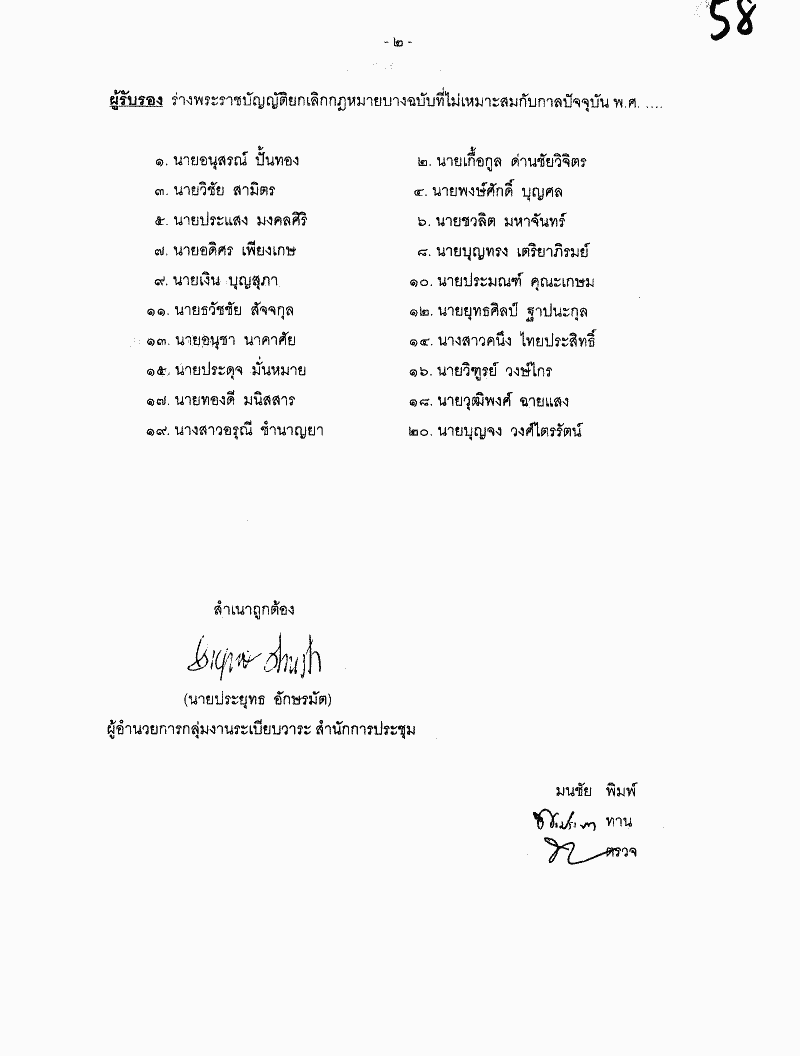 58
- ๒ -
ผู้รับรอง ร่างพระราชบัญญัติยกเลิกกฎหมายบางฉบับที่ไม่เหมาะสมกับกาลปัจจุบัน พ.ศ. ....
๑. นายอนุสรณ์ ปั้นทอง ๒. นายเกื้อกูล ด่านชัยวิจิตร
๓. นายวิชัย สามิตร ๔. นายพงษ์ศักดิ์ บุญศล
๕. นายประแสง มงคลศิริ ๖. นายชวลิต มหาจันทร์
๗. นายอดิศร เพียงเกษ ๘. นายบุญทรง เตริยาภิรมย์
๙. นายเงิน บุญสุภา ๑๐. นายประมณฑ์ คุณะเกษม
๑๑. นายธวัชชัย สัจจกุล ๑๒. นายยุทธศิลป์ ฐาปนะกุล
๑๓. นายอนุชา นาคาศัย ๑๔. นางสาวคนึง ไทยประสิทธิ์
๑๕. นายประดุจ มั่นหมาย ๑๖. นายวิฑูรย์ วงษ์ไกร
๑๗. นายทองดี มนิสสาร ๑๘. นายวุฒิพงศ์ ฉายแสง
๑๙. นางสาวอรุณี ชำนาญยา ๒๐. นายบุญจง วงศ์ไตรรัตน์
สำเนาถูกต้อง
(นายประยุทธ อักษรมัต)
ผู้อำนวยการกลุ่มงานระเบียบวาระ สำนักการประชุม
มนชัย พิมพ์
ทาน
ตรวจ